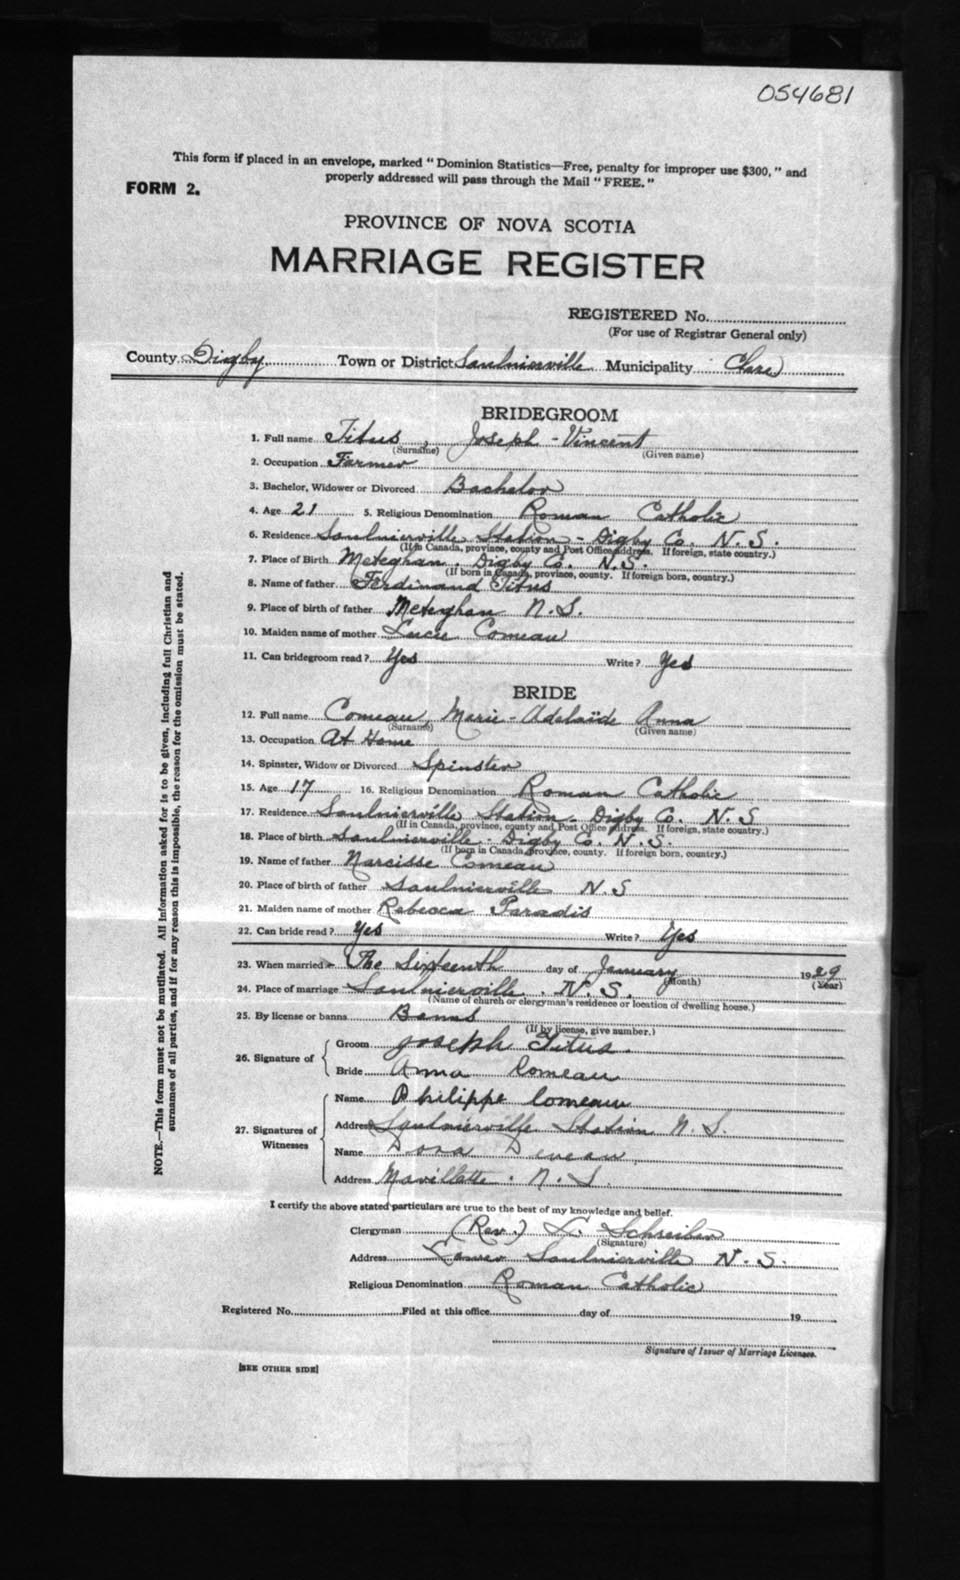 054681
This form if placed in an envelope, marked "Dominion Statistics—Free, penalty for improper use $300," and
properly addressed will pass through the Mail "FREE."
FORM 2.
PROVINCE OF NOVA SCOTIA
MARRIAGE REGISTER
REGISTERED No.
(For use of Registrar General only)
County Digby Town or District Saulnierville Municipality Clare
BRIDEGROOM
1. Full name Titus, Joseph-Vincent
(Surname) (Given name)
2. Occupation Farmer
3. Bachelor, Widower or Divorced Bachelor
4. Age 21 5. Religious Denomination Roman Catholic
6. Residence Saulnierville Station - Digby Co. N.S.
(If in Canada, province, county and Post Office address. If foreign, state country.)
7. Place of Birth Meteghan. Digby Co. N.S.
(If born in Canada, province, county. If foreign born, country.)
8. Name of father Ferdinand Titus
9. Place of birth of father Meteghan N.S.
10. Maiden name of mother Lucie Comeau
11. Can bridegroom read? Yes Write? Yes
BRIDE
12. Full name Comeau, Marie-Adelaïde Anna
(Surname) (Given name)
13. Occupation At Home
14. Spinster, Widow or Divorced Spinster
15. Age 17 16. Religious Denomination Roman Catholic
17. Residence Saulnierville Station - Digby Co. N.S
(If in Canada, province, county and Post Office address. If foreign, state country.)
18. Place of birth Saulnierville - Digby Co. N.S.
(If born in Canada, province, county. If foreign born, country.)
19. Name of father Narcisse Comeau
20. Place of birth of father Saulnierville N.S
21. Maiden name of mother Rebecca Paradis
22. Can bride read? Yes Write? Yes
23. When married The Sixteenth day of January 1929
(Month) (Year)
24. Place of marriage Saulnierville. N.S.
(Name of church or clergyman's residence or location of dwelling house.)
25. By license or banns Banns
(If by license, give number.)
26. Signature of
Groom Joseph Titus.
Bride Anna Comeau
27. Signatures of Witnesses
Name Philippe Comeau
Address Saulnierville Station N.S.
Name Dora Deveau
Address Mavillette. N.S.
I certify the above stated particulars are true to the best of my knowledge and belief.
Clergyman (Rev.) L. Schreiber
(Signature)
Address Lower Saulnierville N.S.
Religious Denomination Roman Catholic
Registered No. Filed at this office day of 19
Signature of Issuer of Marriage Licenses.
[SEE OTHER SIDE]
NOTE.—This form must not be mutilated. All information asked for is to be given, including full Christian and
surnames of all parties, and if for any reason this is impossible, the reason for the omission must be stated.